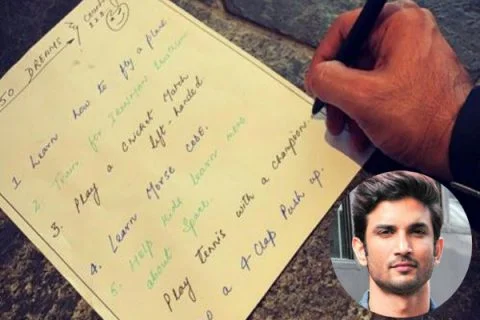 50 DREAMS &
1 Learn how to fly a plane
2 Train for Ironman triathlon
3. Play a Cricket Match
left-handed
4. Learn Morse Code.
5. Help kids learn more
about Space.
Play tennis with a champion
a 4 Clap Push up.